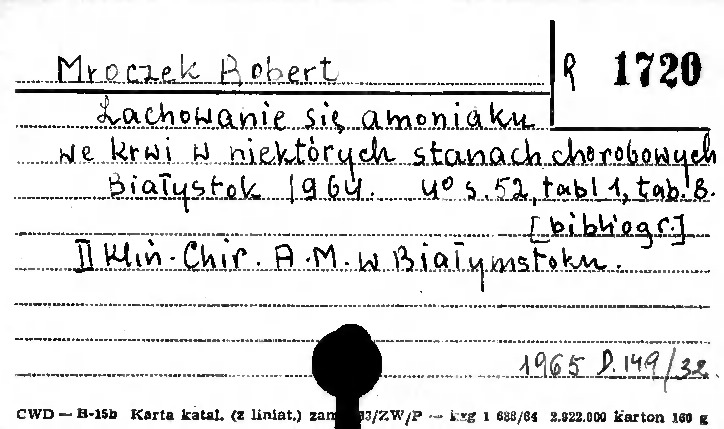 Mroczek Robert R 1720
Zachowanie się amoniaku
we krwi w niektórych stanach chorobowych
Białystok 1964. 4º s. 52, tabl 1, tab. 8.
[bibliogr.]
II Klin. Chir. A.M. w Białymstoku.
1965 D. 149/32
CWD — B-15b Karta katal. (z liniat.) zam 3/ZW/P — kzg 1 688/64 2.822.000 Karton 160 g